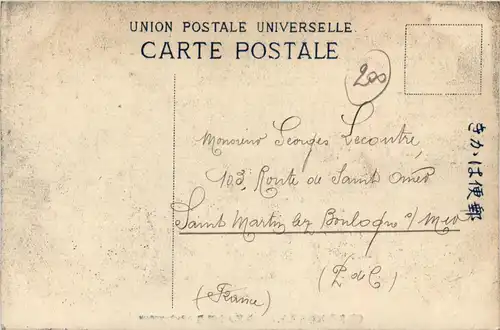 UNION POSTALE UNIVERSELLE.
CARTE POSTALE
200
きかは便郵
Monsieur Georges Lecontre,
103 Route de Saint Omer
Saint Martin lez Boulogne s/Mer
(P. de C)
(France)